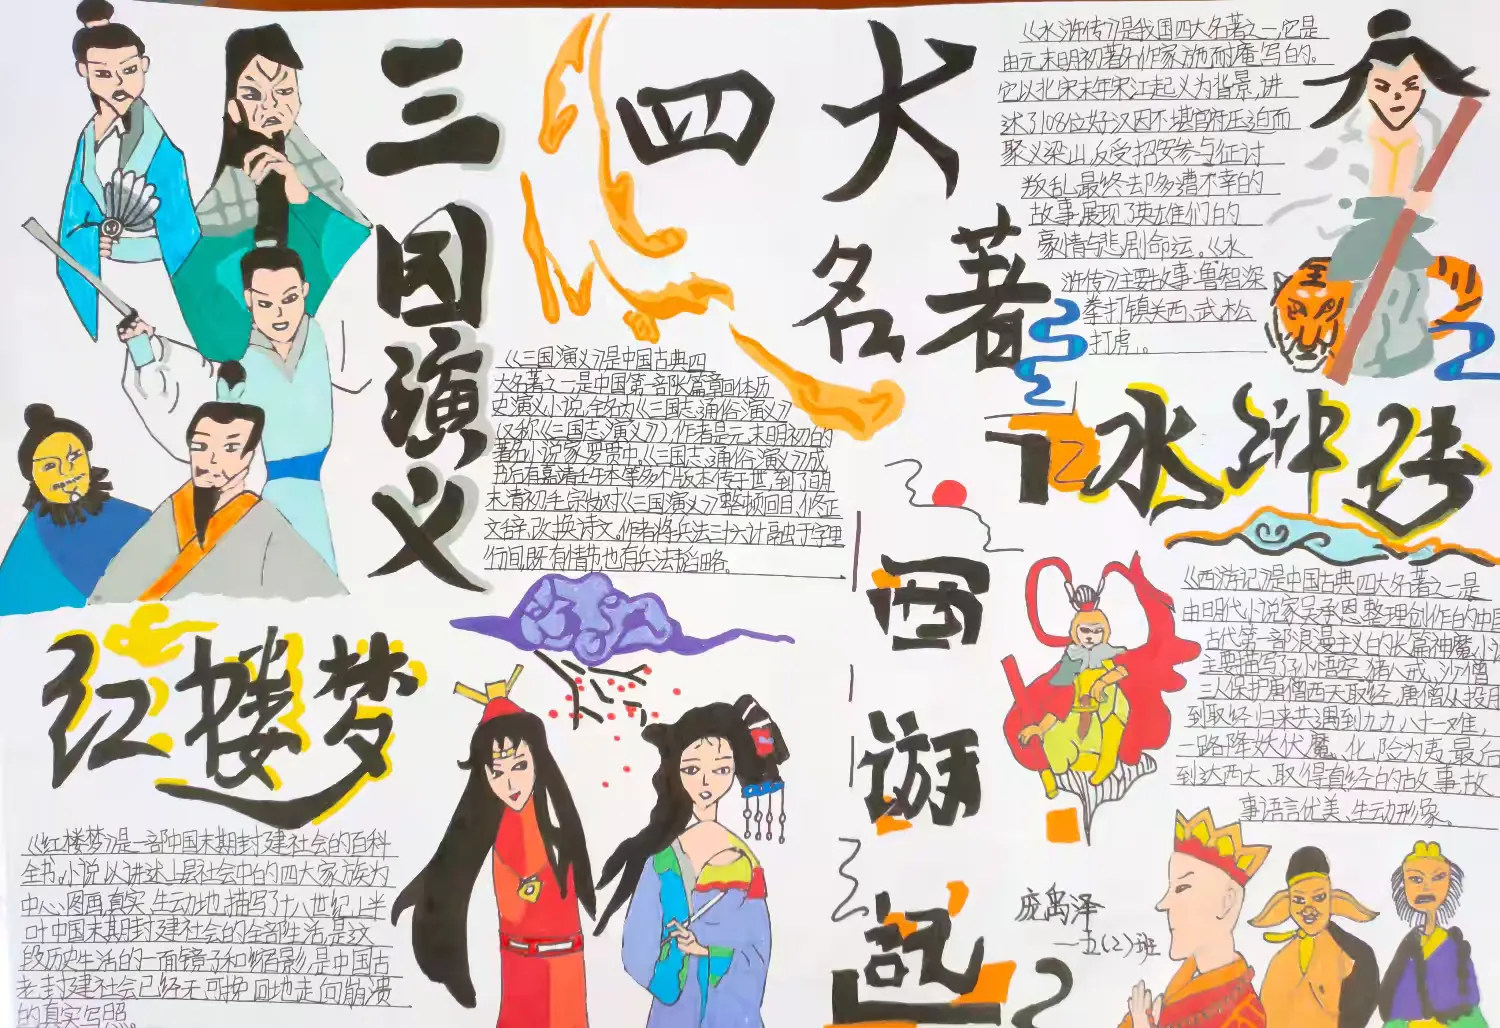 四大名著
三国演义
《三国演义》是中国古典四
大名著之一是中国第一部长篇章回体历
史演义小说,全名为《三国志通俗演义》
(又称《三国志演义》)作者是元末明初的
著名小说家罗贯中。《三国志通俗演义》成
书后有嘉靖壬午本等多个版本传于世,到了明
末清初毛宗岗对《三国演义》整顿回目、修正
文辞、改换诗文。作者将兵法三十六计融于字里
行间,既有情节也有兵法韬略。
《水浒传》是我国四大名著之一,它是
由元末明初著名作家施耐庵写的。
它以北宋末年宋江起义为背景,讲
述了108位好汉因不堪官府压迫而
聚义梁山,反受招安参与征讨
叛乱,最终却多遭不幸的
故事,展现了英雄们的
豪情与悲剧命运。《水
浒传》主要故事:鲁智深
拳打镇关西、武松
打虎。
水浒传
红楼梦
《红楼梦》是一部中国末期封建社会的百科
全书。小说以讲述上层社会中的四大家族为
中心图画,真实、生动地描写了十八世纪上半
叶中国末期封建社会的全部生活,是这
段历史生活的一面镜子和缩影,是中国古
老封建社会已经无可挽回地走向崩溃
的真实写照。
西游记
《西游记》是中国古典四大名著之一,是
由明代小说家吴承恩整理创作的中国
古代第一部浪漫主义的长篇神魔小说
主要描写了孙悟空、猪八戒、沙僧
三人保护唐僧西天取经,唐僧从投胎
到取经归来共遇到九九八十一难,
一路降妖伏魔,化险为夷,最后
到达西天、取得真经的故事。故
事语言优美、生动形象。
庞禹泽
五(2)班